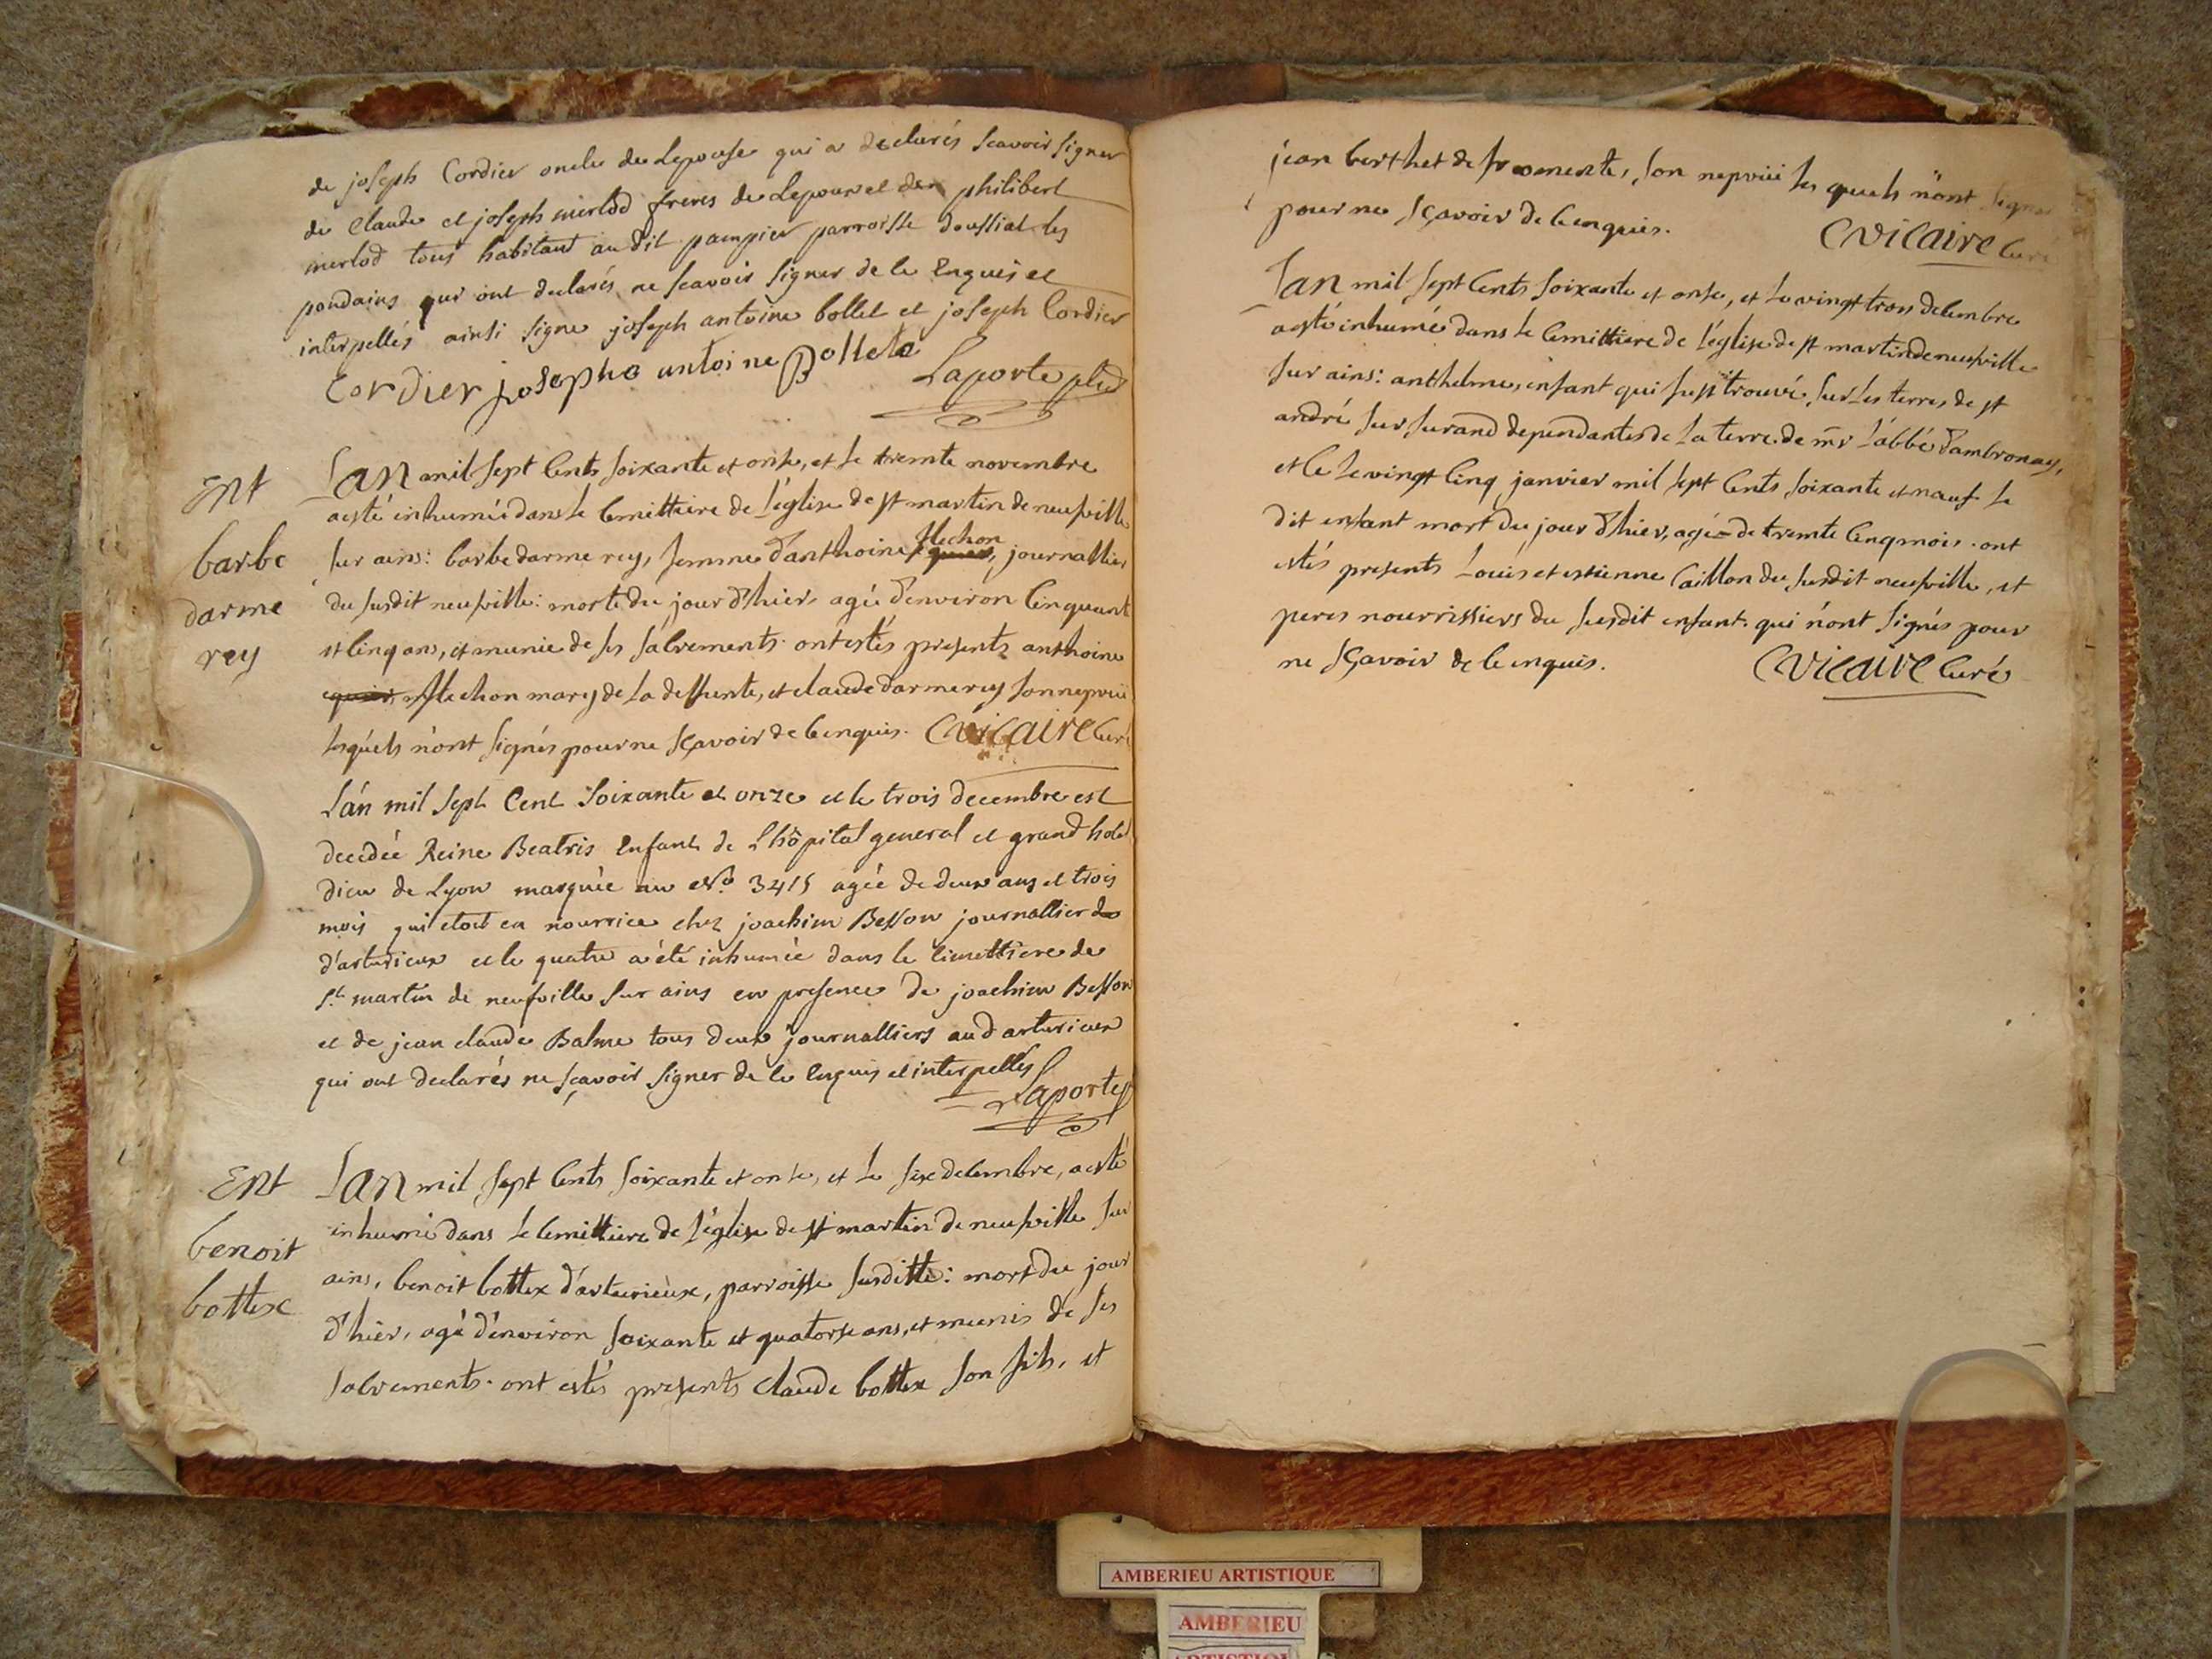 de joseph Cordier oncle de Lepouse qui a declarés scavoir signer
de Claude et joseph merlod freres de Lepoux et de philibert
merlod tous habitant au dit pampier parroisse doussiat les
poudains qui ont declarés ne scavoir signer de ce Enquis et
interpellés ainsi signe joseph antoine bollet et joseph Cordier
Cordier josephe antoine Bollete
Laporte
Ent
barbe
darme
rey
Lan mil sept Cents soixante et onse, et le tremte novembre
aesté inhumée dans le Cemittiere de L'église de st martin de neufville
sur ains: barbe darme rey, femme d'anthoine flechon, journallier
du susdit neufville: morte du jour d'hier, agée d'environ Cinquant
et Cinq ans, et munie de ses sacrements. ont estés presents anthoine
flechon mary de La deffunte, et claude darmerey son nepveu
lesquels n'ont signés pour ne sçavoir de Ce enquis. Cvicaire Curé
L'an mil sept Cent soixante et onze et le trois decembre est
decedée Reine Beatris Enfant de L'hôpital general et grand hotel
Dieu de Lyon marquée au No 3415 agée de deux ans et trois
mois qui etoit en nourrice chez joachim Besson journallier de
d'arturieux et le quatre a été inhumée dans le Cimettiere de
St martin de neufville sur ains en presence de joachim Besson
et de jean claude Balme tous deux journalliers aud arturieux
qui ont declarés ne sçavoir signer de ce Enquis et interpellés
Laporte
Ent
benoit
bottex
Lan mil sept Cents soixante et onse, et Le six decembre, aesté
inhumé dans Le Cemittiere de L'église de st martin de neufville sur
ains, benoit bottex d'arturieux, parroisse susditte: mort du jour
d'hier, agé d'environ soixante et quatorse ans, et munis de ses
sacrements. ont estés presents claude bottex son fils, et
jean berthet de fromente, son nepveu les quels n'ont signés
pour ne sçavoir de Ce enquis.
Cvicaire Curé
Lan mil sept Cents soixante et onse, et Le vingt trois decembre
aesté inhumé dans le Cemittiere de L'église de st martin de neufville
sur ains: anthelme, enfant qui fust trouvé, sur Les terres de st
andré sur surand dependantes de La terre de mr L'abbé d'ambronay,
et Ce Le vingt Cinq janvier mil sept Cents soixante et neuf. Le
dit enfant mort du jour d'hier, agé de tremte Cinq mois. ont
estés presents Louis et estienne Caillon du susdit neufville, et
peres nourrissiers du susdit enfant. qui n'ont signés pour
ne sçavoir de Ce enquis.
Cvicaire Curé
AMBERIEU ARTISTIQUE
AMBERIEU
ARTISTIQUE